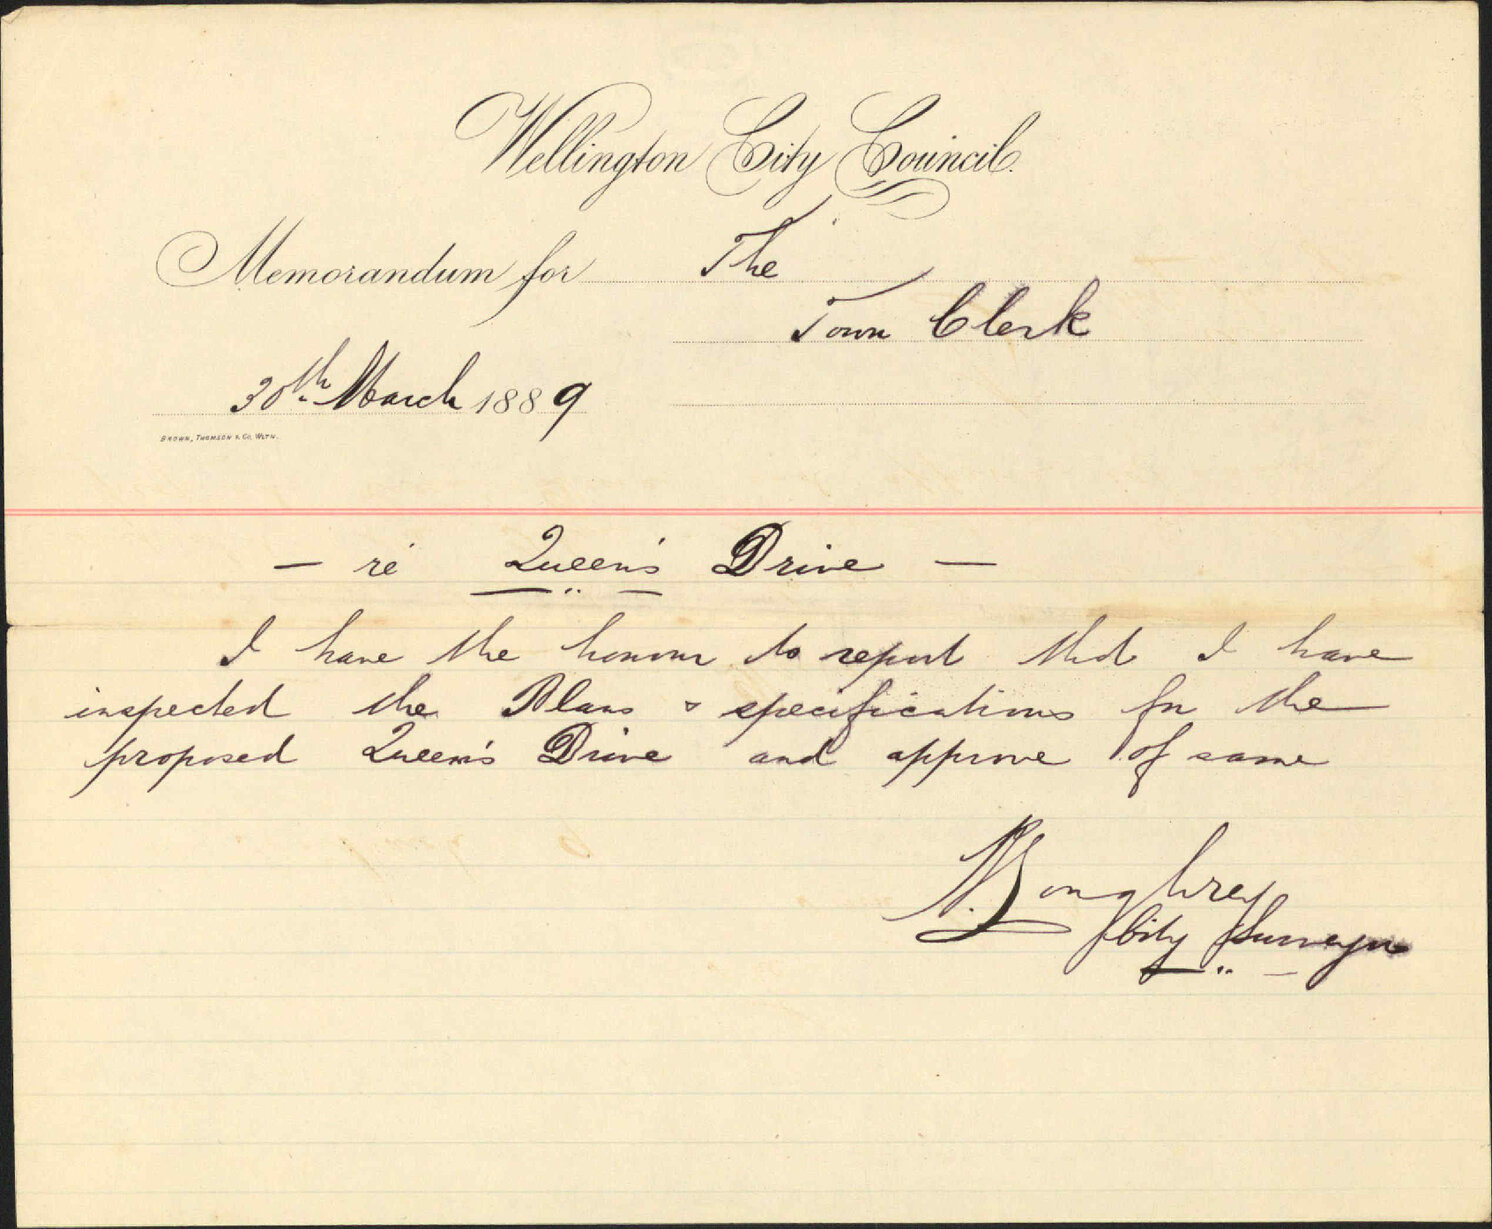 Wellington City Council.
Memorandum for The
Town Clerk
30th March 1889
BROWN, THOMSON & Co. WGTN.
— re Queen's Drive —
I have the honour to report that I have
inspected the Plans & specifications for the
proposed Queen's Drive and approve of same
Loughrey
City Surveyor